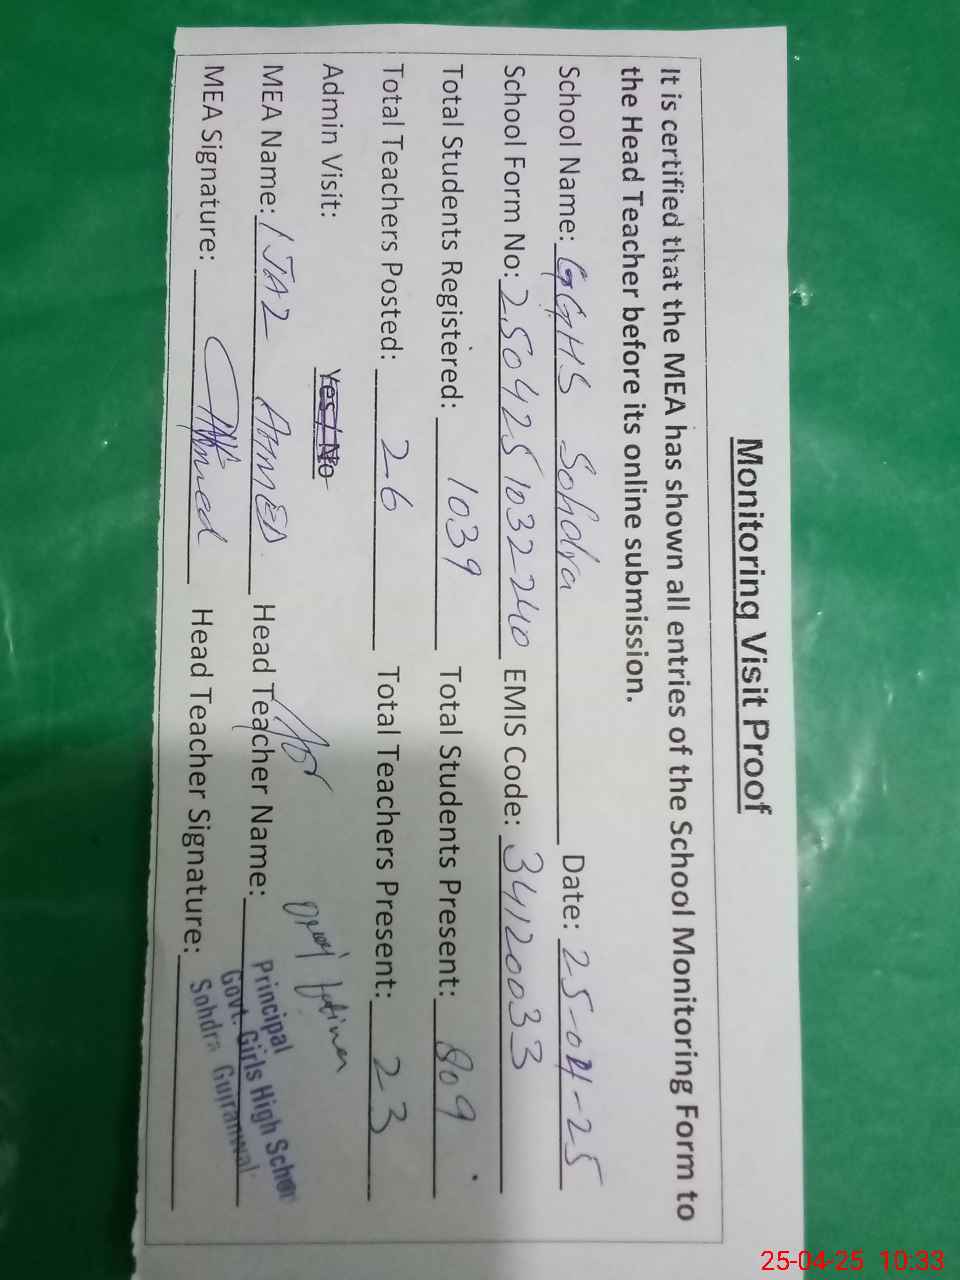 Monitoring Visit Proof
It is certified that the MEA has shown all entries of the School Monitoring Form to
the Head Teacher before its online submission.
School Name: GGHS Sohdra Date: 25-04-25
School Form No: 2504251032240 EMIS Code: 34120033
Total Students Registered: 1039 Total Students Present: 809
Total Teachers Posted: 26 Total Teachers Present: 23
Admin Visit: Yes / No
MEA Name: IJAZ AHMED Head Teacher Name:
MEA Signature: Ahmed Head Teacher Signature:
Principal
Govt. Girls High School
Sohdra Gujranwal
25-04-25 10:33